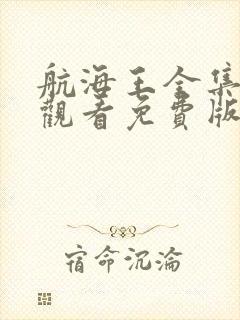 航海王全集
觀看免費版
宿命沉淪